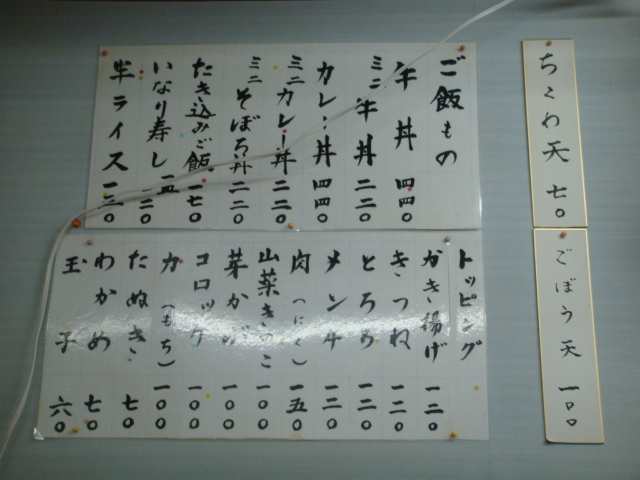 ご飯もの
牛丼 四四〇
ミニ牛丼 二二〇
カレー丼 四四〇
ミニカレー丼 二二〇
ミニそぼろ丼 二二〇
たき込みご飯 一七〇
いなり寿し 一ケ 一二〇
半ライス 一三〇
トッピング
かき揚げ 一二〇
きつね 一二〇
とろろ 一二〇
メンチ 一二〇
肉(にく) 一五〇
山菜きのこ 一〇〇
芽かぶ 一〇〇
コロッケ 一〇〇
力(もち) 一〇〇
たぬき 七〇
わかめ 七〇
玉子 六〇
ちくわ天 七〇
ごぼう天 一〇〇